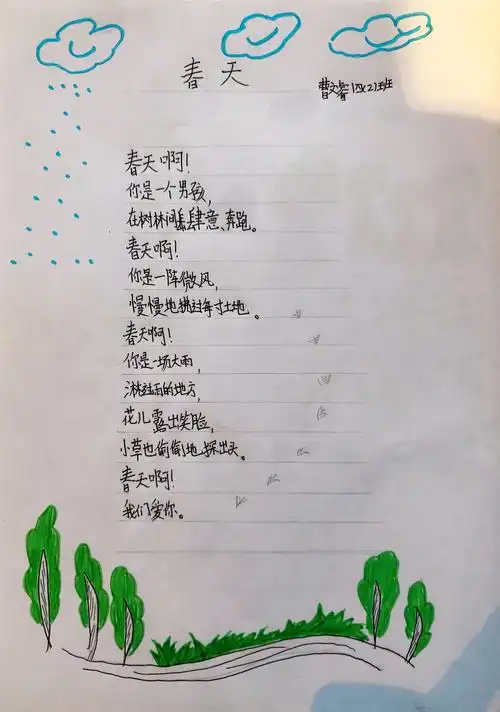 春天
曹文睿 四(2)班
春天啊!
你是一个男孩,
在树林间肆意、奔跑。
春天啊!
你是一阵微风,
慢慢地拂过每寸土地。
春天啊!
你是一场大雨,
淋过雨的地方,
花儿露出笑脸,
小草也偷偷地探出头。
春天啊!
我们爱你。